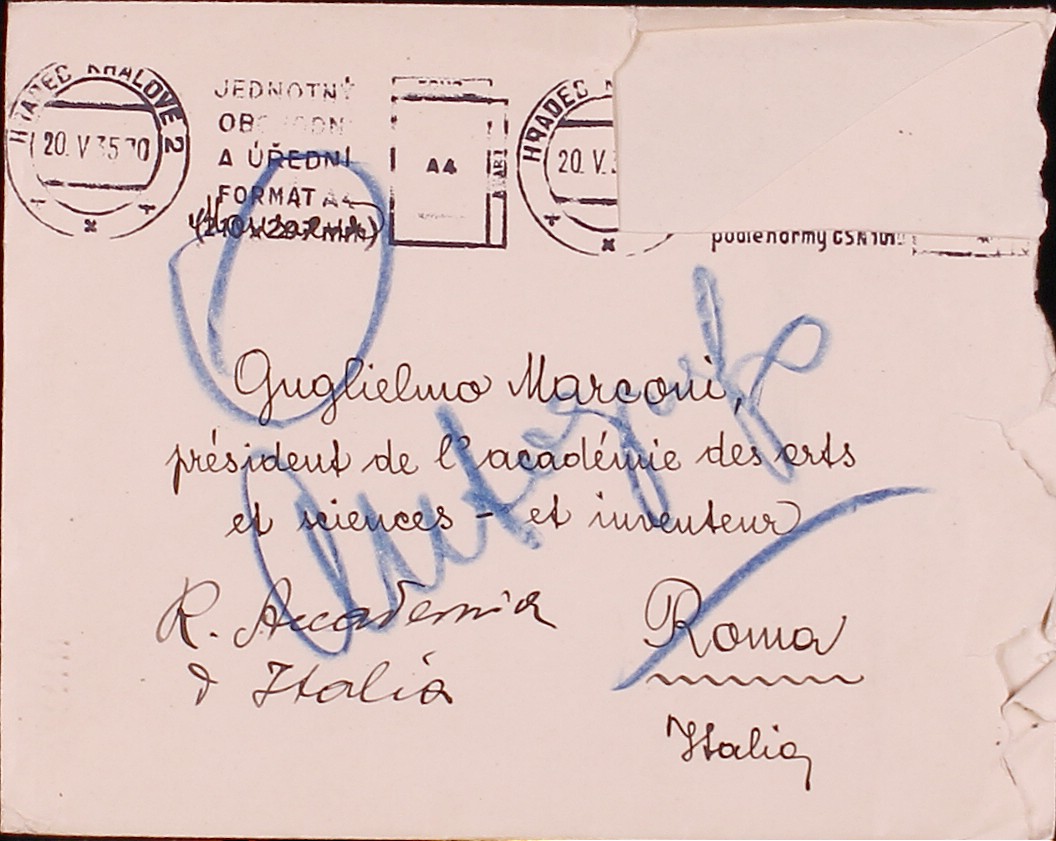 HRADEC KRÁLOVÉ 2
20. V 35 20
JEDNOTNÝ
OBCHODNÍ
A ÚŘEDNÍ
FORMÁT A4
(210 x 297 mm)
A4
HRADEC
20. V. 3
podle normy ČSN 101
Guglielmo Marconi,
président de l'académie des arts
et sciences - et inventeur
R. Accademia
d Italia
Roma
Italia